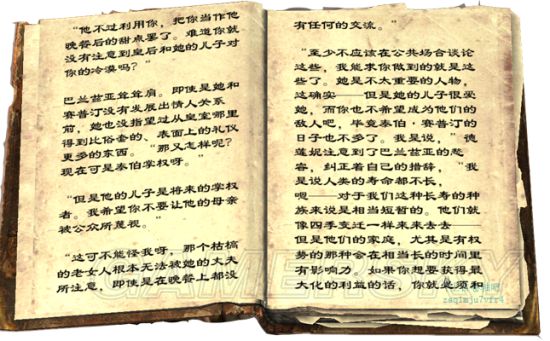 “他不过利用你，把你当作他
晚餐后的甜点罢了。难道你就
没有注意到皇后和她的儿子对
你的冷漠吗？”
巴兰兹亚耸耸肩。即使是她和
赛普汀没有发展出情人关系
前，她也没指望过从皇室哪里
得到比俗套的、表面上的礼仪
更多的东西。“那又怎样呢？
现在可是泰伯掌权呀。”
“但是他的儿子是将来的掌权
者。我希望你不要让他的母亲
被公众所蔑视。”
“这可不能怪我呀，那个枯槁
的老女人根本无法被她的丈夫
所注意，即使是在晚餐上都没
有任何的交流。”
“至少不应该在公共场合谈论
这些，我能求你做到的就是这
些了。她是不太重要的人物，
这确实——但是她的儿子很爱
她，而你也不希望成为他们的
敌人吧，毕竟泰伯·赛普汀的
日子也不多了。我是说，”德
莲妮注意到了巴兰兹亚的愁
容，纠正着自己的措辞，“我
是说人类的寿命都不长，
嗯——对于我们这种长寿的种
族来说是相当短暂的。他们就
像四季变迁一样来来去去——
但是他们的家庭，尤其是有权
势的那种会在相当长的时间里
有影响力。如果你想要获得最
大化的利益的话，你就必须和
GAMERSKY
zaq1mju7vfr4